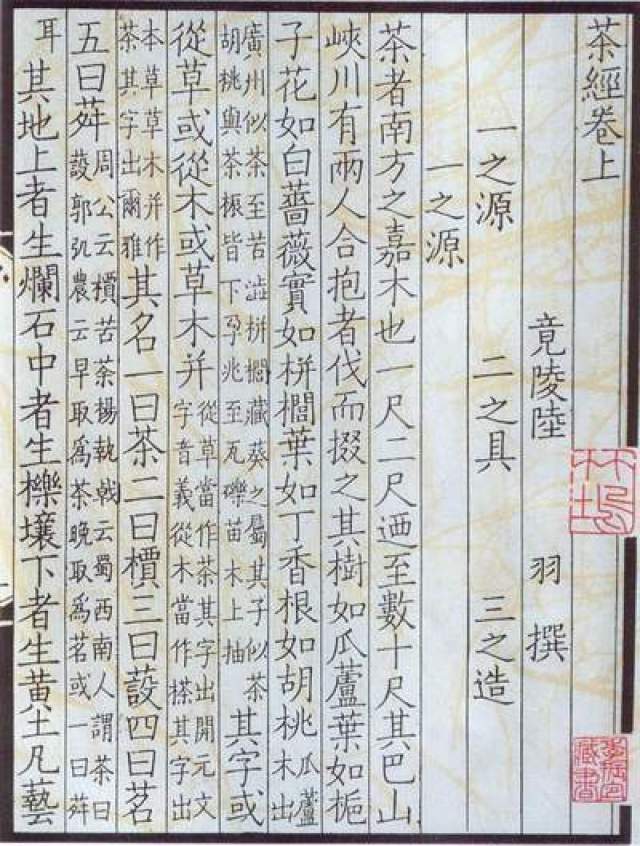 茶經卷上
竟陵陸 羽 撰
一之源 二之具 三之造
一之源
茶者南方之嘉木也一尺二尺迺至數十尺其巴山
峽川有兩人合抱者伐而掇之其樹如瓜蘆葉如梔
子花如白薔薇實如栟櫚葉如丁香根如胡桃瓜蘆木出
廣州似茶至苦澁栟櫚藏葵之屬其子似茶胡桃與茶根皆下孕兆至瓦礫苗木上抽其字或
從草或從木或草木并從草當作茶其字出開元文字音義從木當作搽其字出
本草草木并作茶其字出爾雅其名一曰茶二曰檟三曰蔎四曰茗
五曰荈周公云檟苦茶楊執戟云蜀西南人謂茶曰蔎郭弘農云早取為茶晚取為茗或一曰荈
耳其地上者生爛石中者生櫟壤下者生黃土凡藝
藏書